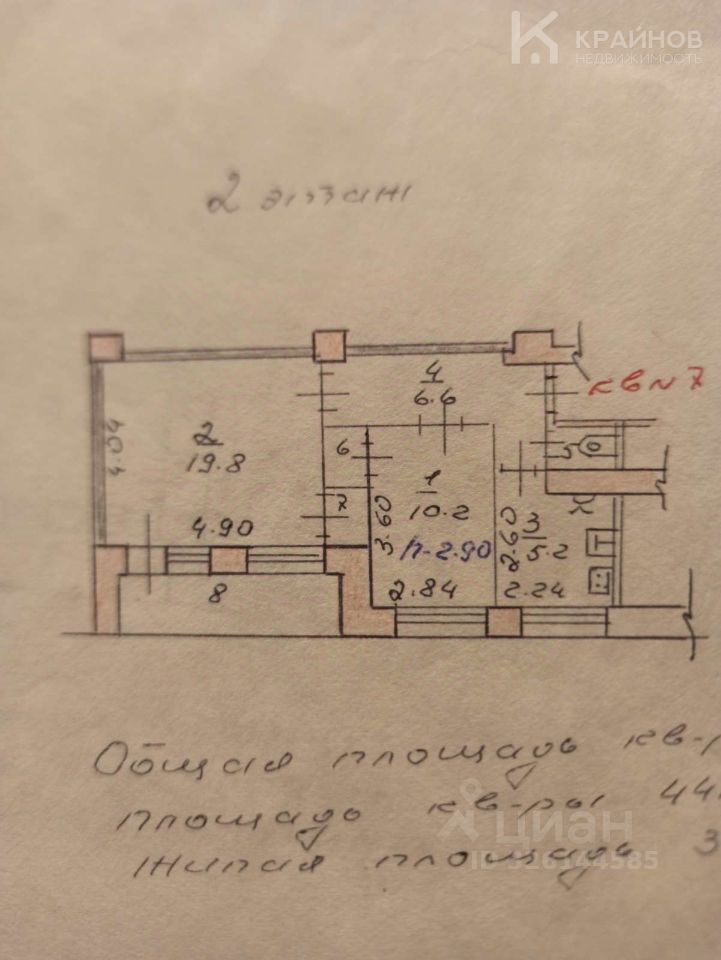 КРАЙНОВ
НЕДВИЖИМОСТЬ
2 этаж
4
6.6
кв N 7
2
19.8
4.04
6
1
10.2
3.60
7
h-2.90
2.60
3
5.2
5
4.90
8
2.84
2.24
Общая площадь кв-
площадь кв-ры 44
Жилая площадь 3
циан